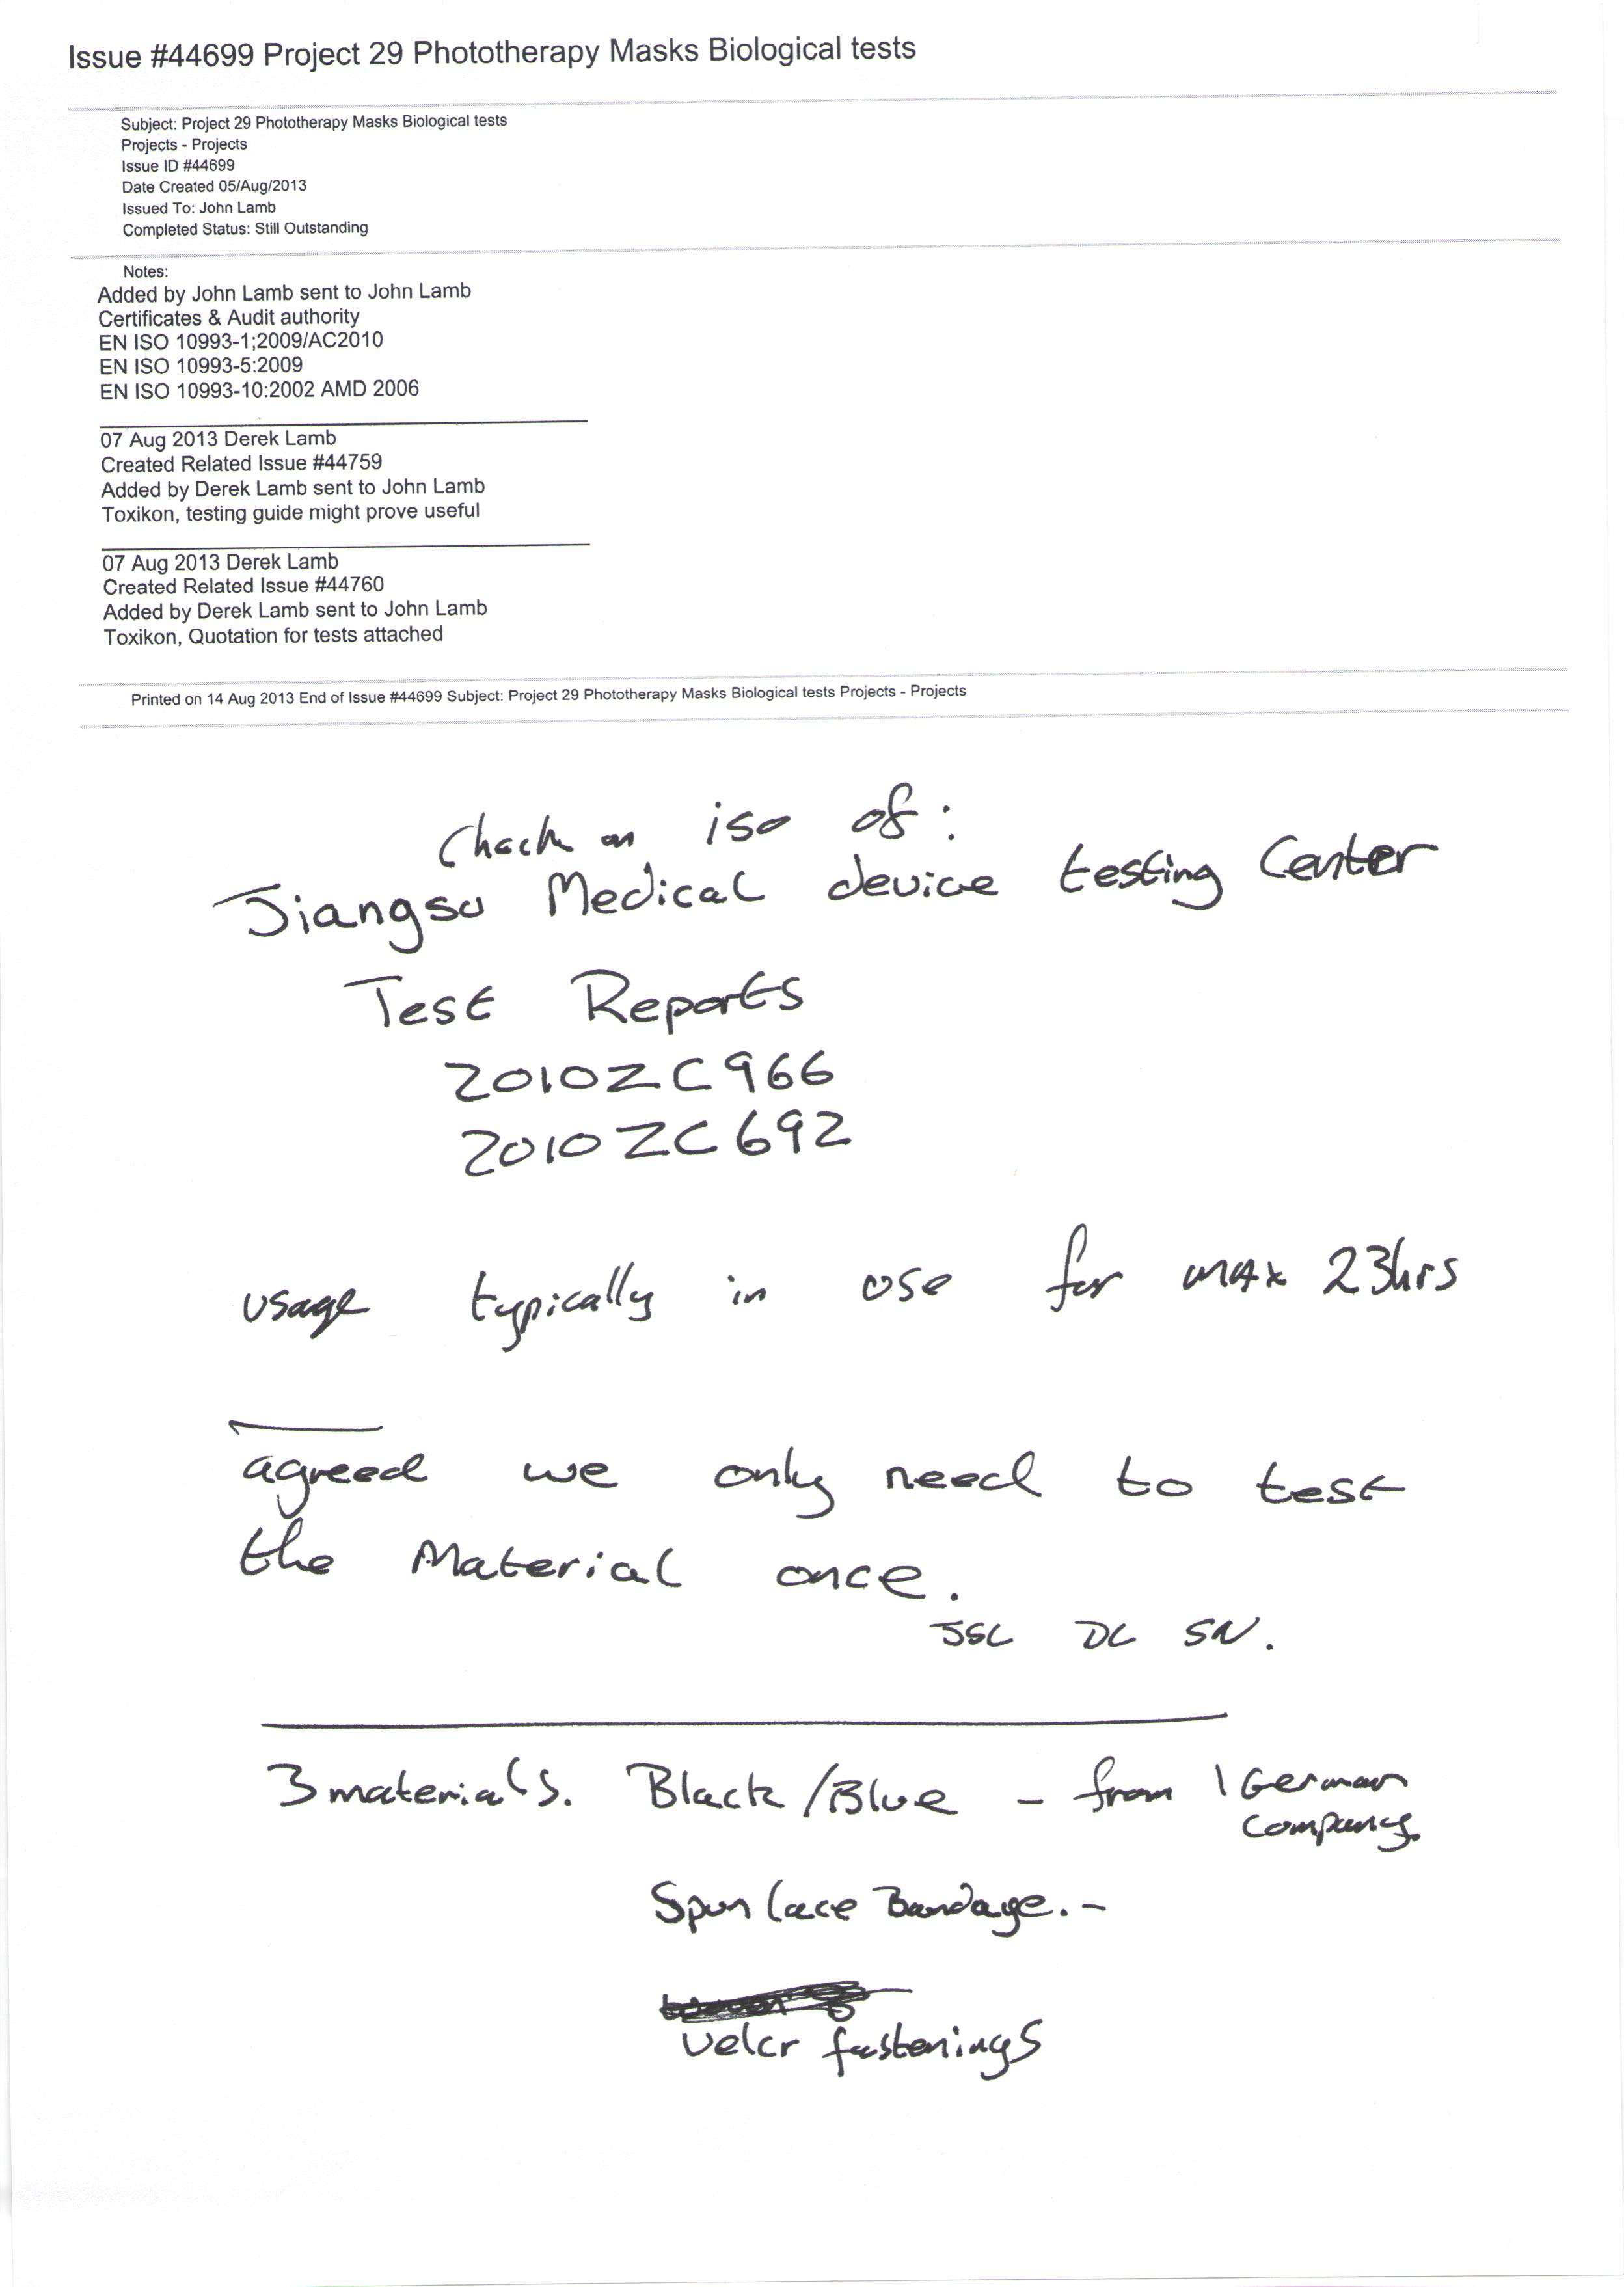 Issue #44699 Project 29 Phototherapy Masks Biological tests
Subject: Project 29 Phototherapy Masks Biological tests
Projects - Projects
Issue ID #44699
Date Created 05/Aug/2013
Issued To: John Lamb
Completed Status: Still Outstanding
Notes:
Added by John Lamb sent to John Lamb
Certificates & Audit authority
EN ISO 10993-1;2009/AC2010
EN ISO 10993-5:2009
EN ISO 10993-10:2002 AMD 2006
07 Aug 2013 Derek Lamb
Created Related Issue #44759
Added by Derek Lamb sent to John Lamb
Toxikon, testing guide might prove useful
07 Aug 2013 Derek Lamb
Created Related Issue #44760
Added by Derek Lamb sent to John Lamb
Toxikon, Quotation for tests attached
Printed on 14 Aug 2013 End of Issue #44699 Subject: Project 29 Phototherapy Masks Biological tests Projects - Projects
Check on iso of:
Jiangsu Medical device testing Center
Test Reports
2010ZC966
2010ZC692
usage typically in use for max 23hrs
agreed we only need to test
the Material once.
JSL DC SN.
3 materials. Black/Blue - from 1 German
Company
Spun lace Bandage. -
velcr fastenings